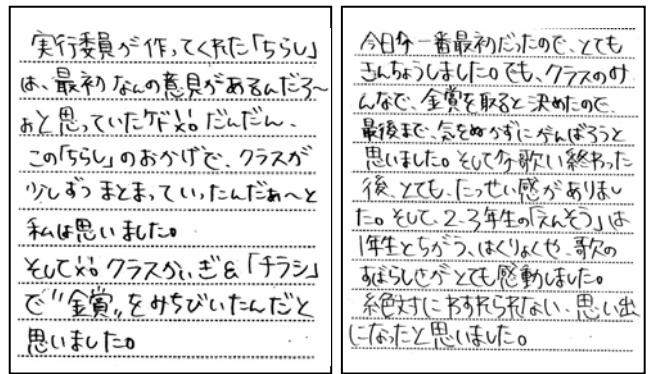 実行委員が作ってくれた「ちらし」
は、最初なんの意見があるんだろ〜
ぉと思っていたケド だんだん、
この「ちらし」のおかげで、クラスが
少しずつまとまっていったんだぁ〜と
私は思いました。
そして クラスかいぎ&「チラシ」
で"金賞"をみちびいたんだと
思いました。
今日、一番最初だったので、とても
きんちょうしました。でも、クラスのみ
んなで、金賞を取ると決めたので、
最後まで、気をぬかずにがんばろうと
思いました。そして 歌い終わった
後、とても、たっせい感がありまし
た。そして、2-3年生の「えんそう」は
1年生とちがう、はくりょくや、歌の
すばらしさがとても感動しました。
絶対にわすれられない、思い出
になったと思いました。